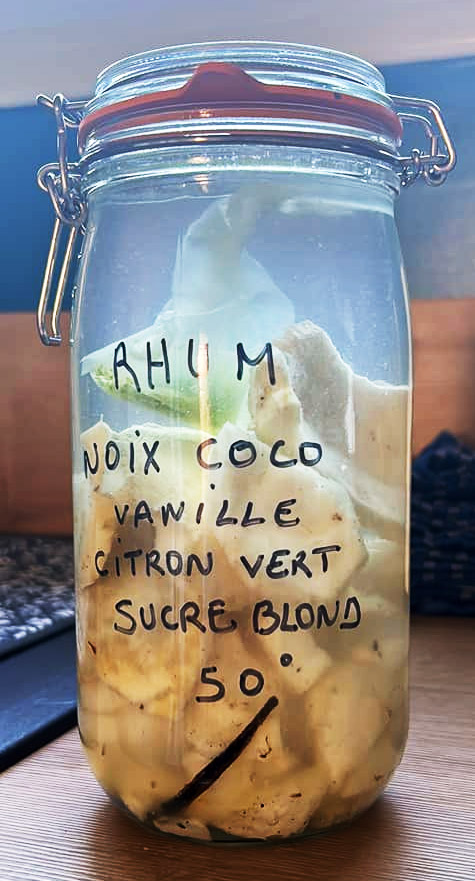 RHUM
NOIX COCO
VANILLE
CITRON VERT
SUCRE BLOND
50°